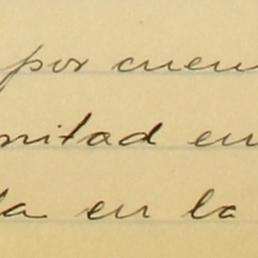 por cuen
mitad en
la en la